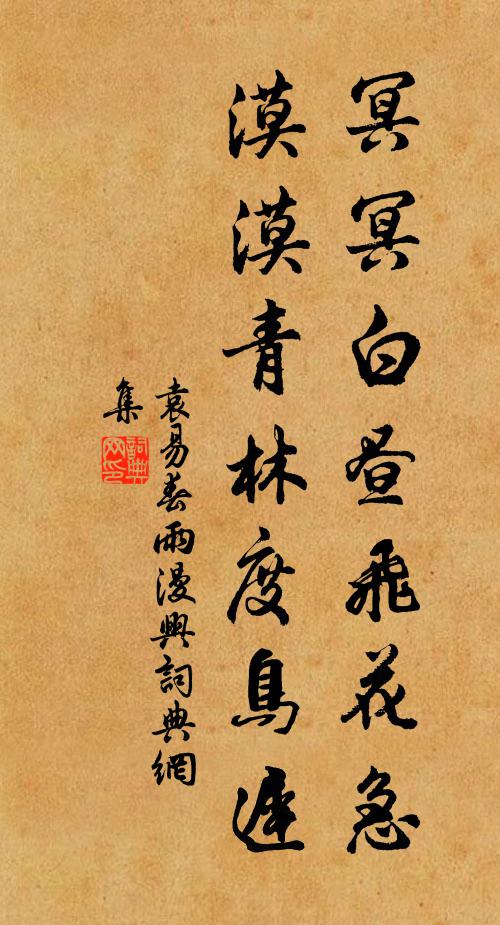 冥冥白昼飛花急
漠漠青林度鳥遲
袁易春雨漫興詞典網
集
詞典網印